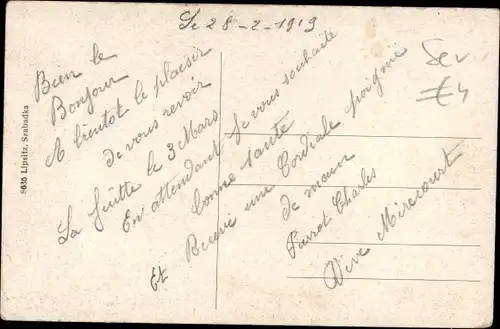 Le 28-2-1919
Bien le
Bonjour
A bientot le plaisir
de vous revoir
La fuitte le 3 Mars
En attendant Je vous souhaite
bonne santé
Et Recevé une Cordiale poignié
de main
Pierrot Charles
Vive Mirecourt
Ser
€4
8635 Lipsitz, Szabadka